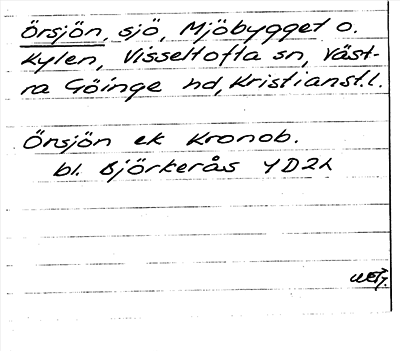 Örsjön, sjö, Mjöbygget o.
Kylen, Visseltofta sn, Väst-
ra Göinge hd, Kristianst.l.
Örsjön ek Kronob.
bl. Björkerås 4D2h